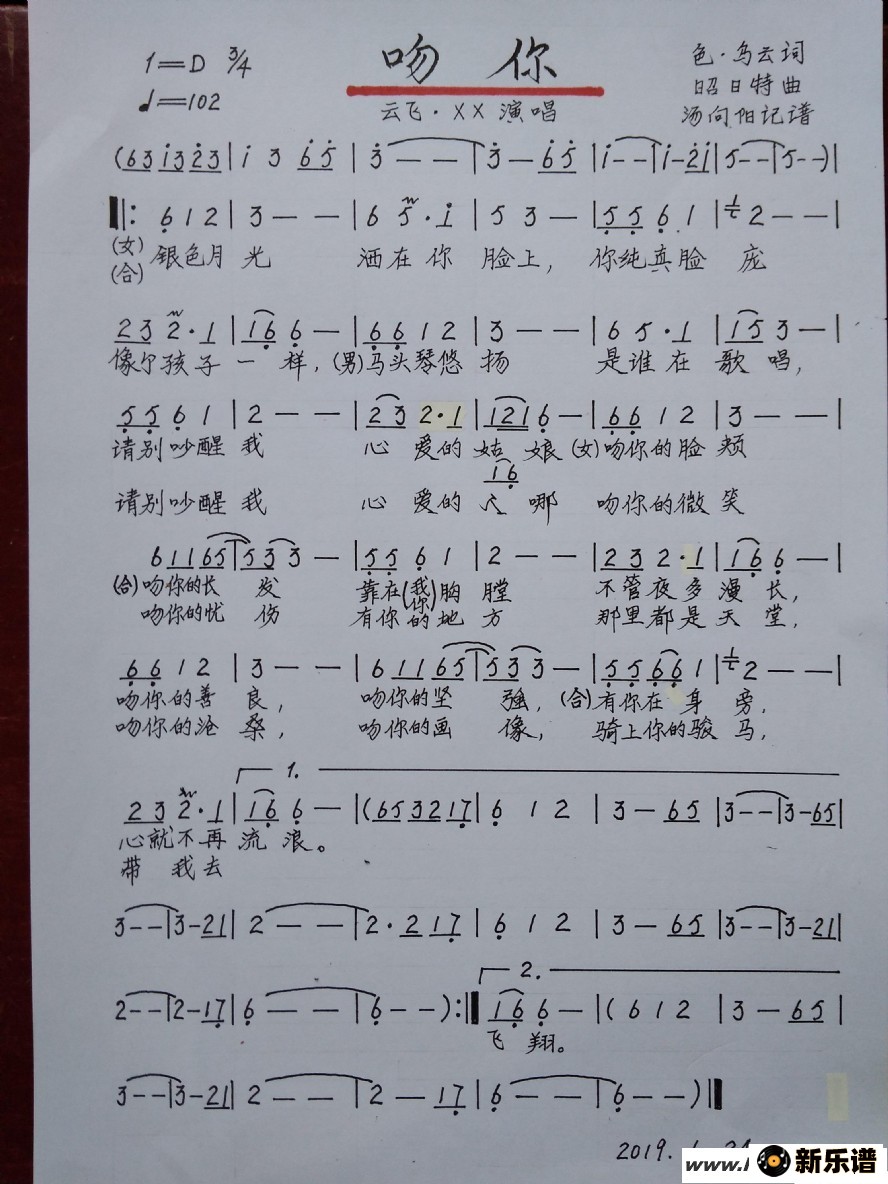 1=D 3/4 吻 你 色·乌云词
♩=102 云飞·XX 演唱 昭日特曲
汤向阳记谱
(6 3 i 3 2 3 | i 3 6 5 | 3 — — | 3 — 6 5 | i - - | i - 2 i | 5 - - | 5 - -) |
‖: 6 1 2 | 3 — — | 6 5 · i | 5 3 — | 5 5 6 1 | 2 — — |
(女) 银色月 光 洒在你 脸上, 你纯真脸 庞
(合)
2 3 2 · 1 | 1 6 6 — | 6 6 1 2 | 3 — — | 6 5 · 1 | 1 5 3 — |
像尔孩子 一 样, (男)马头琴悠 扬 是谁在 歌 唱,
5 5 6 1 | 2 — — | 2 3 2 · 1 | 1 2 1 6 — | 6 6 1 2 | 3 — — |
请别吵醒 我 心 爱的 姑 娘 (女)吻你的脸 颊
1 6
请别吵醒 我 心 爱的 人 哪 吻你的微 笑
6 1 1 6 5 | 5 3 3 — | 5 5 6 1 | 2 — — | 2 3 2 · 1 | 1 6 6 — |
(合)吻你的长 发 靠在(我)胸 膛 不管夜多 漫 长,
吻你的忧 伤 有你(你)的地 方 那里都是 天 堂,
6 6 1 2 | 3 — — | 6 1 1 6 5 | 5 3 3 — | 5 5 6 6 1 | 2 — — |
吻你的善 良, 吻你的坚 强, (合)有你在 身 旁,
吻你的沧 桑, 吻你的画 像, 骑上你的骏 马,
1.
2 3 2 · 1 | 1 6 6 — | (6 5 3 2 1 7 | 6 1 2 | 3 — 6 5 | 3 - - | 3 - 6 5 |
心就不再 流 浪。
带 我去
3 - - | 3 - 2 1 | 2 — — | 2 · 2 1 7 | 6 1 2 | 3 — 6 5 | 3 - - | 3 - 2 1 |
2.
2 - - | 2 - 1 7 | 6 — — | 6 - -) :‖ 1 6 6 — | ( 6 1 2 | 3 — 6 5 |
飞 翔。
3 - - | 3 - 2 1 | 2 — — | 2 — 1 7 | 6 — — | 6 - -) ‖
2019.
www. 新乐谱